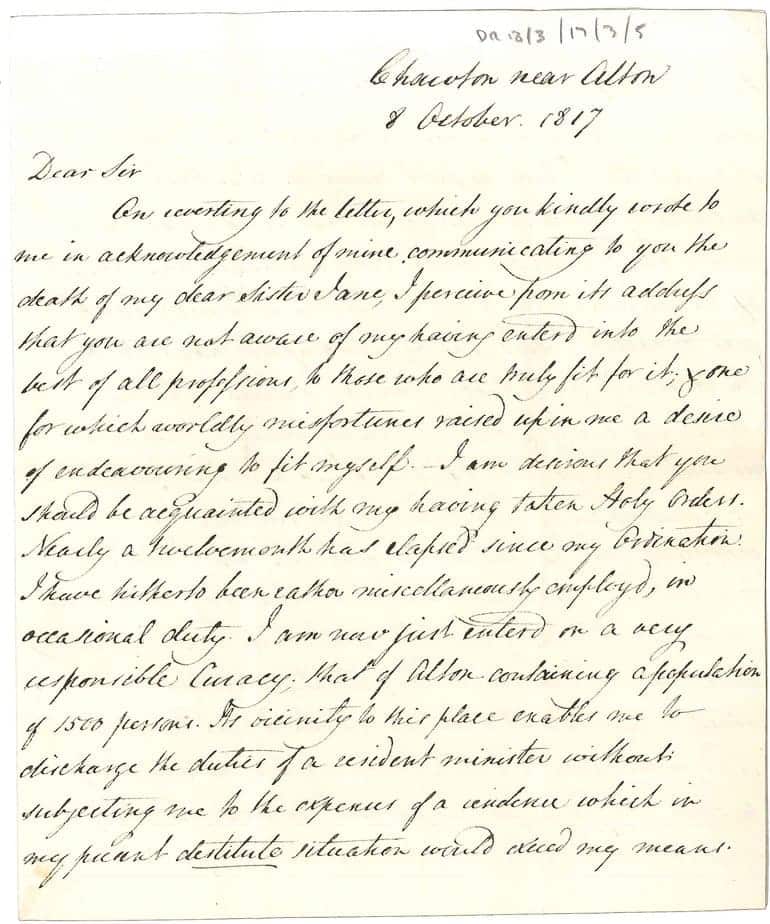 DR 18/3/17/3/5
Chawton near Alton
8 October. 1817
Dear Sir
On reverting to the letter, which you kindly wrote to
me in acknowledgement of mine communicating to you the
death of my dear Sister Jane, I perceive from its address
that you are not aware of my having enterd into the
best of all professions, to those who are truly fit for it; & one
for which worldly misfortunes raised up in me a desire
of endeavouring to fit myself. – I am desirous that you
should be acquainted with my having taken Holy Orders.
Nearly a twelvemonth has elapsed since my Ordination.
I have hitherto been rather miscellaneously employd, in
occasional duty. I am now just enterd on a very
responsible Curacy, that of Alton containing a population
of 1500 persons. Its vicinity to this place enables me to
discharge the duties of a resident minister without
subjecting me to the expences of a residence which in
my present destitute situation would exceed my means.